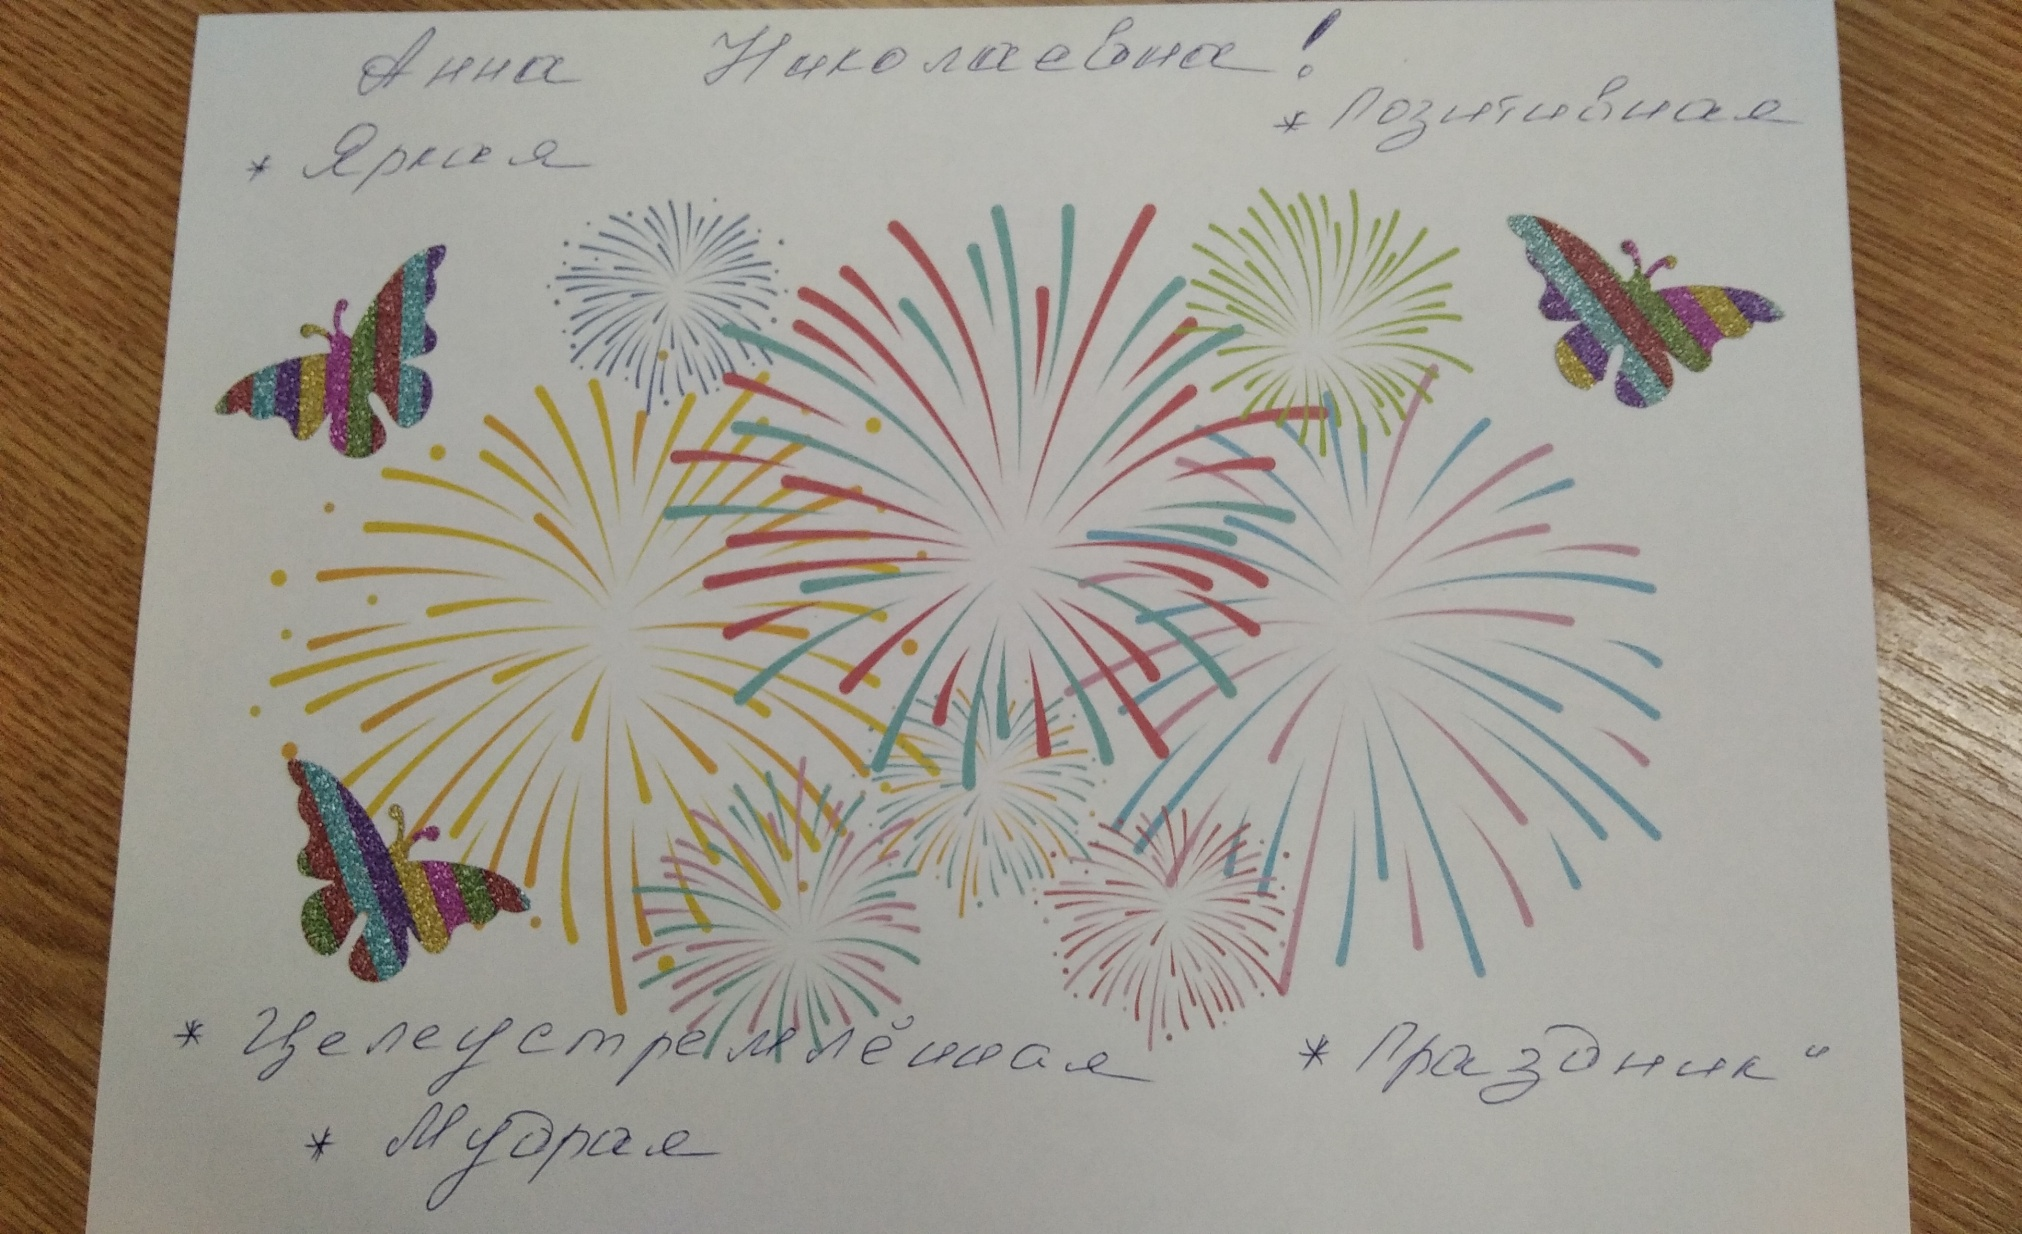 Анна Николаевна!
* Позитивная
* Яркая
* Целеустремлённая
* Праздник"
* Мудрая